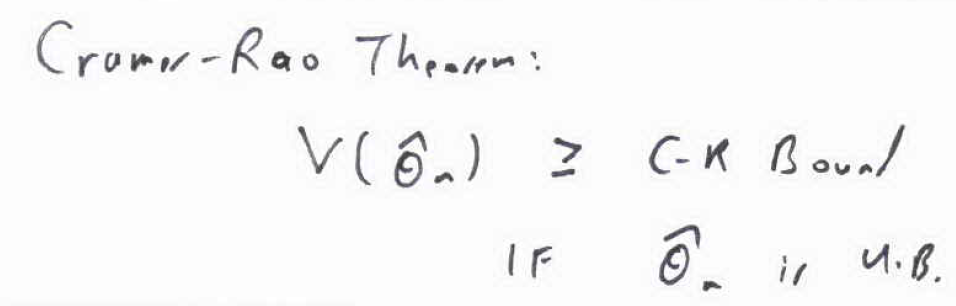 Cramer-Rao Theorem:
V(θ̂n) ≥ C-R Bound
IF θ̂n is U.B.